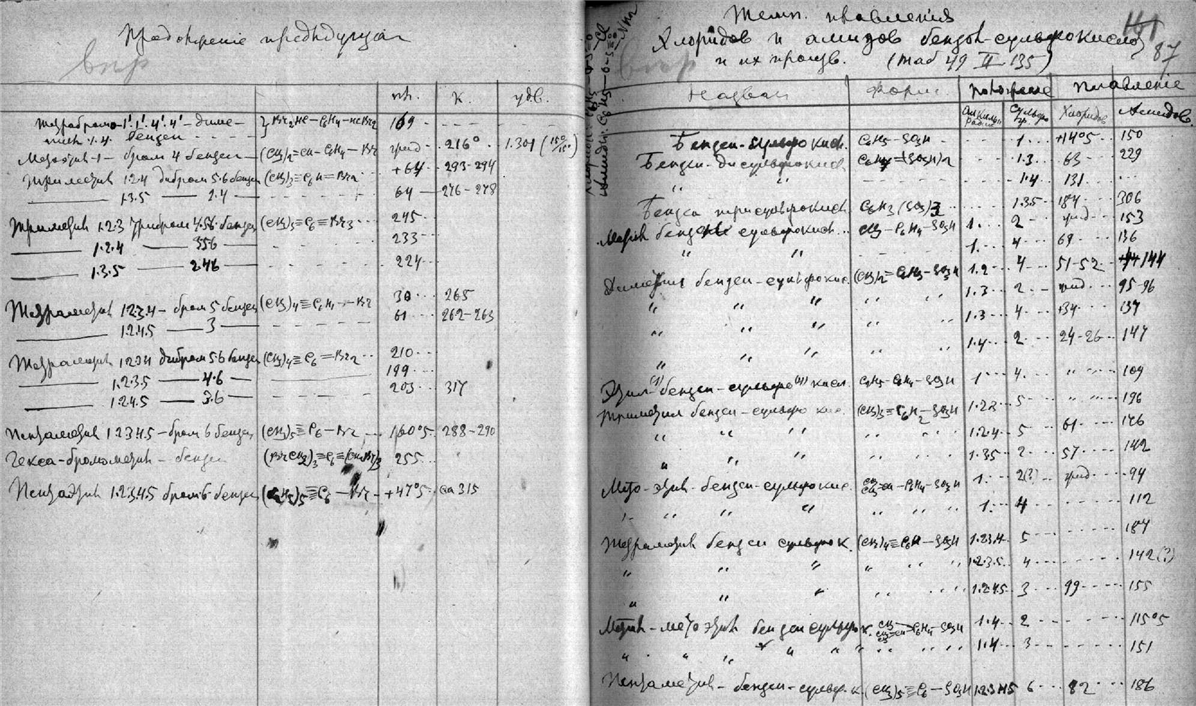 Продолженiе предидущаго
впр
пл. к. удв.
Тетрабром-1'.1'.4'.4'-диме- } Br₂HC-C₆H₄-HCBr₂ 169
тил 1.4. бензен
(CH₃)₂=CH-C₆H₄-Br жид. 216° 1.301 (15°/15°)
Триметил 1.2.4 дибром 5.6 бензен (CH₃)₃≡C₆H=Br₂ +64 293-294
1.3.5 — 2.4 — 64 276-278
Триметил 1.2.3 Трибром 4.5.6 бензен (CH₃)₃≡C₆≡Br₃ 245
1.2.4 — 356 233
1.3.5 — 2.46 224
Тетраметил 1.2.3.4 - бром 5 бензен (CH₃)₄≡C₆H-Br 30 265
1.2.4.5 — 3 — 61 262-263
Тетраметил 1.2.3.4 дибром 5.6 бензен (CH₃)₄≡C₆=Br₂ 210
1.2.3.5 — 4.6 — 199
1.2.4.5 — 3.6 — 203 317
Пентаметил 1.2.3.4.5 - бром 6 бензен (CH₃)₅≡C₆-Br 160°5 288-290
Гекса-бромометил - бензен 255
Пентаэтил 1.2.3.4.5 бром 6 бензен (C₂H₅)₅≡C₆-Br +47°5 ca 315
Темп. плавления
Хлоридов и амидов бензол-сульфокислот
и их произв. (таб 49 II-135)
87
впр
Назван Форм положение плавление
Сульфо Хлоридов Амидов
Бензен-сульфокисл. C₆H₅-SO₃H 1 +14°5 150
Бензен-дисульфокисл. 1.3 63 229
" " 1.4 131
Бензен трисульфокисл. C₆H₃(SO₃)3 1.3.5 184 306
Метил бензен сульфокисл. CH₃-C₆H₄-SO₃H 1. 2 жид 153
" " 1. 4 69 136
Диметил бензен-сульфокисл. (CH₃)₂=C₆H₃-SO₃H 1.2 4 51-52 144
" " " 1.3 2 жид 95-96
" " " 1.3 4 34 137
" " " 1.4 2 24-26 147
Этил(1)-бензен-сульфо(4) кисл. C₂H₅-C₆H₄-SO₃H 1 4 " 109
Триметил бензен-сульфо кис. (CH₃)₃≡C₆H₂-SO₃H 5 " 196
" " " 1.2.4 5 61 176
" " " 1.3.5 2 57 142
Мето-этил-бензен-сульфокис. 1. 2(?) жид 94
" " " 1. 4 112
Тетраметил бензен сульфок. (CH₃)₄≡C₆H-SO₃H 1.2.3.4 5 187
" " " 1.2.3.5. 4 142(?)
" " " 1.2.4.5 3 99 155
Метил-мето этил бензен сульфок. 1.4 2 115°5
" " " " 1.4 3 151
Пентаметил-бензен-сульфо к (CH₃)₅≡C₆-SO₃H 1.2.3.4.5 6 82 186